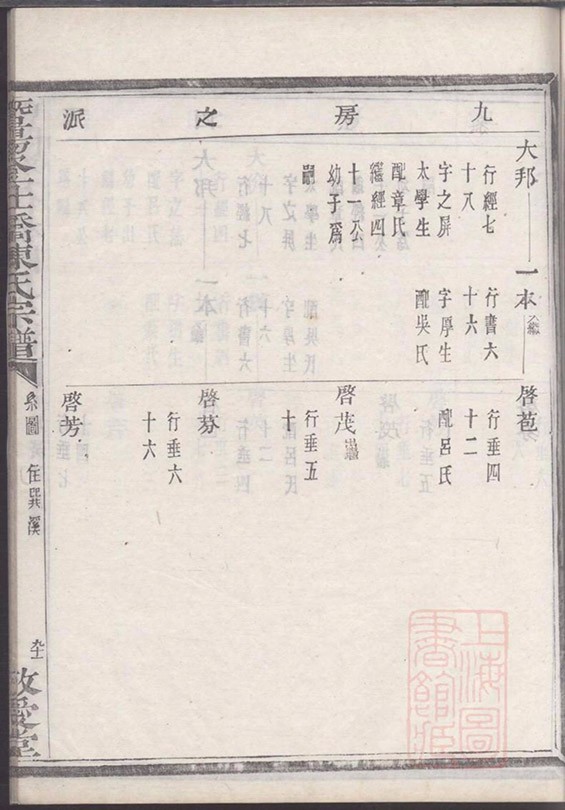 九房之派
大邦
行經七
十八
字之屏
太學生
配章氏
繼經四
十一公
幼子爲
嗣
一本 入繼
行書六
十六
字厚生
配吳氏
啓苞
行垂四
十二
配呂氏
啓茂 出繼
行垂五
十
啓芬
行垂六
十六
啓芳
陳氏宗譜
系圖
住巽溪
敬愛堂
上海圖
書館藏